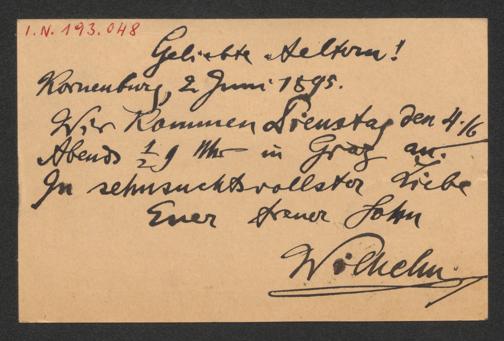 I.N. 193.048
Geliebte Aeltern!
Korneuburg, 2. Juni 1895.
Wir kommen Dienstag den 4./6
Abends ½ 9 Uhr in Graz an.
In sehnsuchtsvollster Liebe
Euer treuer Sohn
Wilhelm.